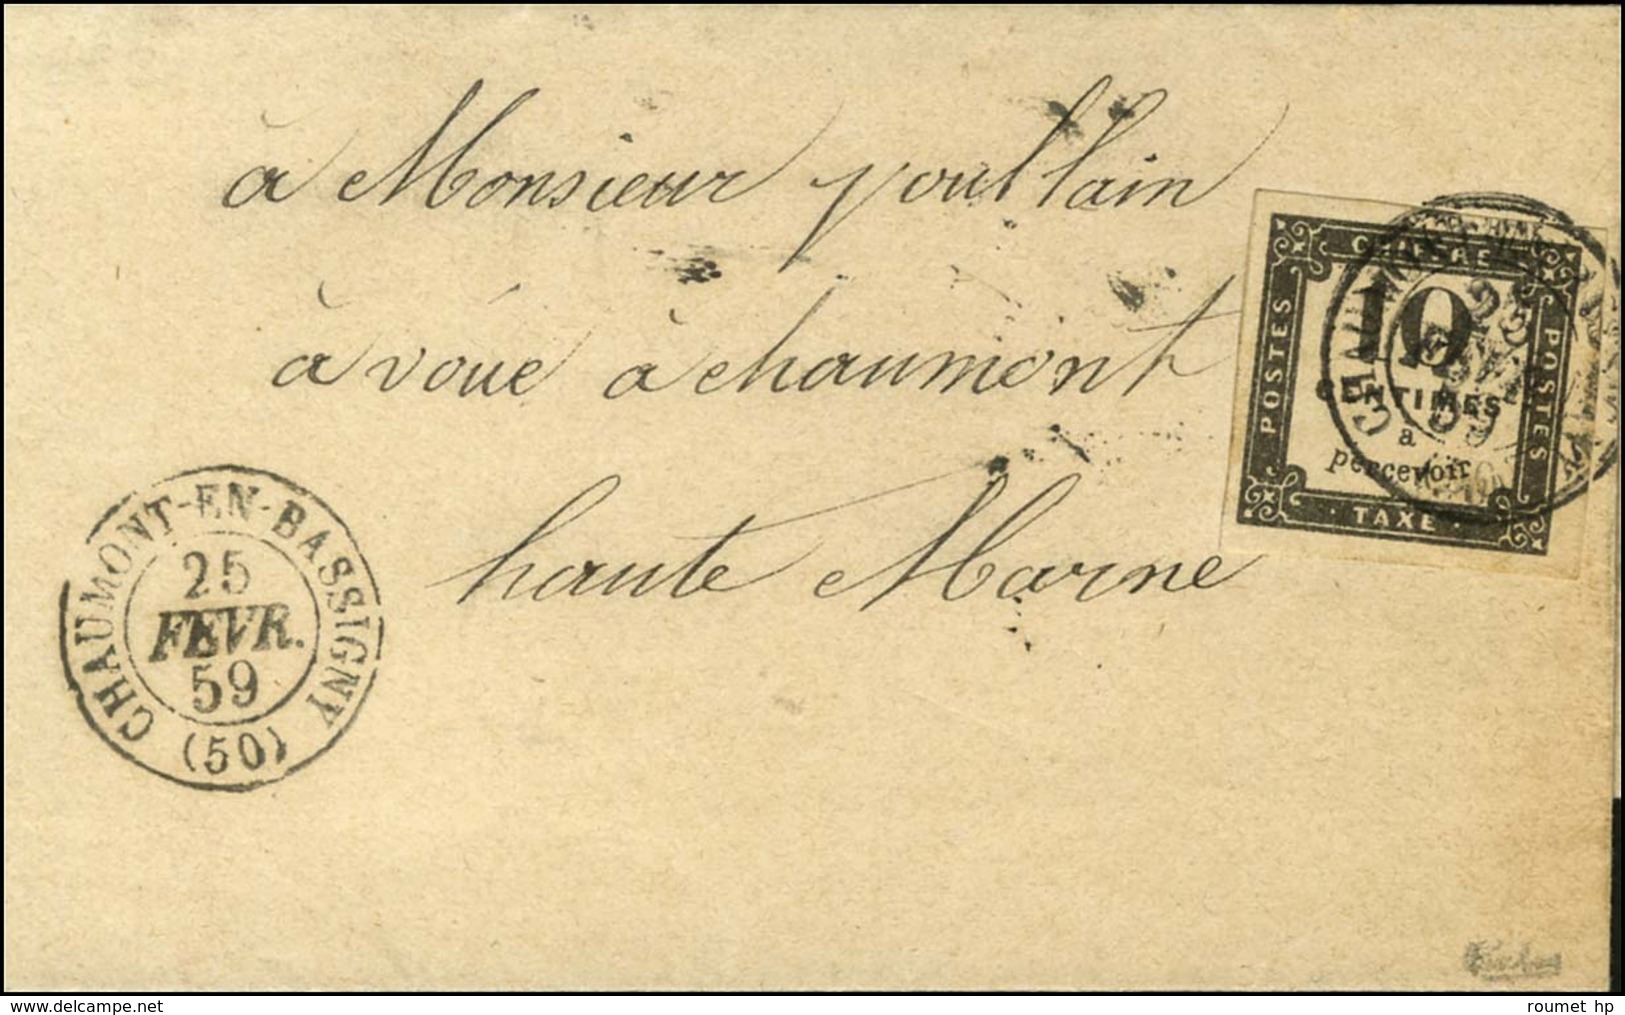 à Monsieur poullain
à voué à chaumont
haute Marne
CHAUMONT-EN-BASSIGNY
25
FEVR.
59
(50)
CHIFFRE
POSTES
10
POSTES
CENTIMES
à
percevoir
TAXE
CHAUMONT
25
59
roumet hp